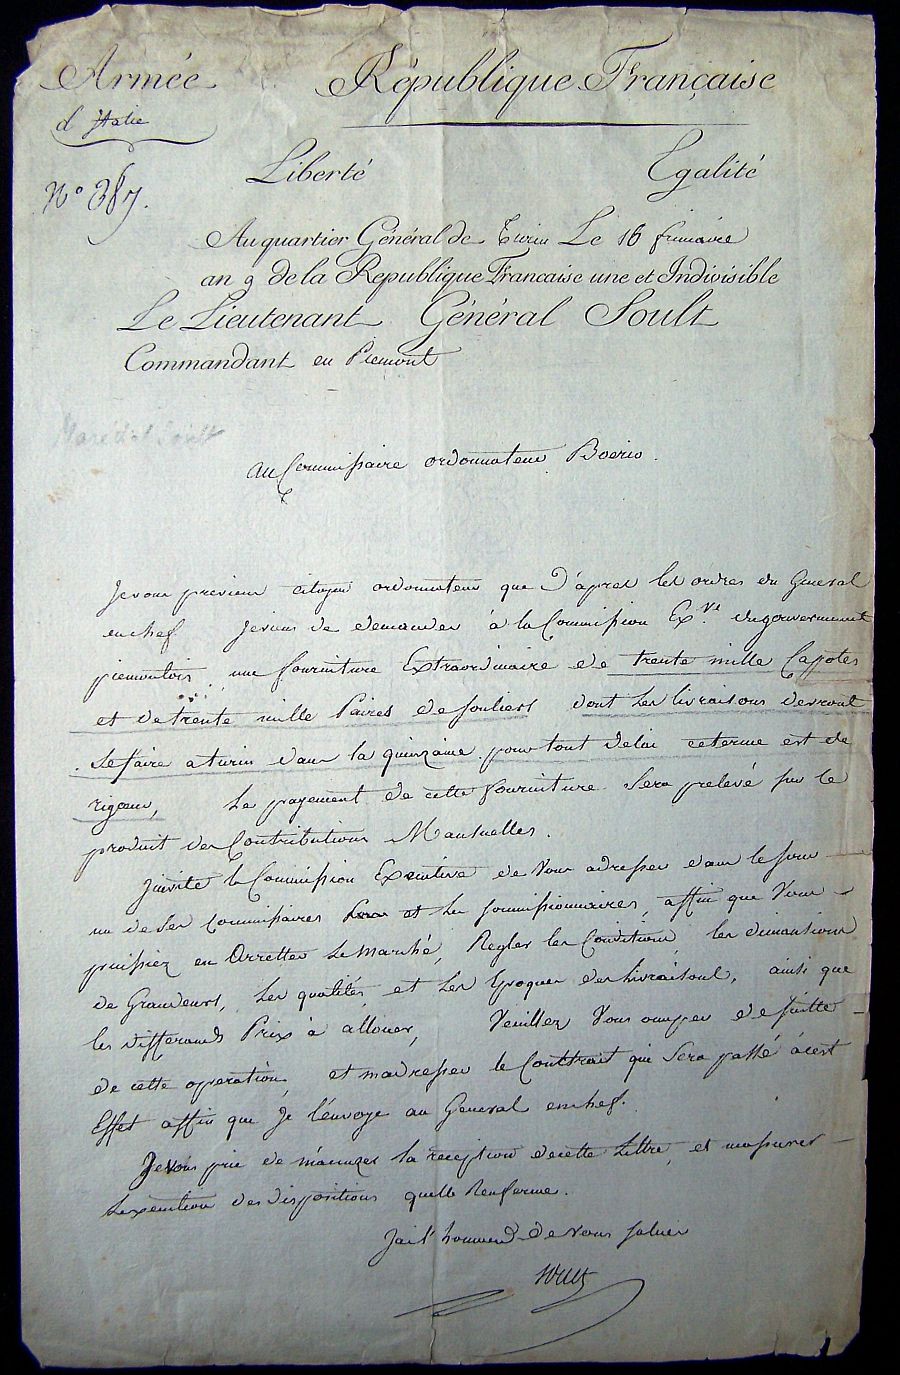 Armée République Française
d'Italie
Liberté Egalité
N° 387.
Au quartier Général de Turin Le 16 frimaire
an 9 de la Republique Francaise une et Indivisible
Le Lieutenant Général Soult
Commandant en Piemont
Maréchal Soult
au Commissaire ordonnateur Boerio.
Je vous previens citoyen ordonnateur que d'apres les ordres du General
en chef je viens de demander à la Commission Exve. du gouvernement
piemontois, une fourniture Extraordinaire de trente mille Capotes
et de trente mille Paires de souliers dont les livraisons devront
se faire a turin dans la quinzaine pour tout delai ce terme est de
rigeur, Le payement de cette fourniture sera prelevé sur le
produit des Contributions Mansuelles.
J'invite la Commission Executive de vous adresser dans le jour
un de ses commissaires et les soumissionnaires, affin que Vous
puissiez en Arretter le marché, Regler les Conditions, les dimantions
de Grandeurs, les qualités, et les Epoques des Livraisons, ainsi que
les differands Prix à allouer, Veuillez Vous ocuper de suitte
de cette operation, et m'adresser le Conttrait qui sera passé à cest
Effet affin que Je l'envoye au General en chef.
Je vous prie de m'acuzer la reception de cette Lettre, et m'assurer
L'exécution des dispositions quelle Renferme.
J'ai l'honneur de vous saluer
Soult